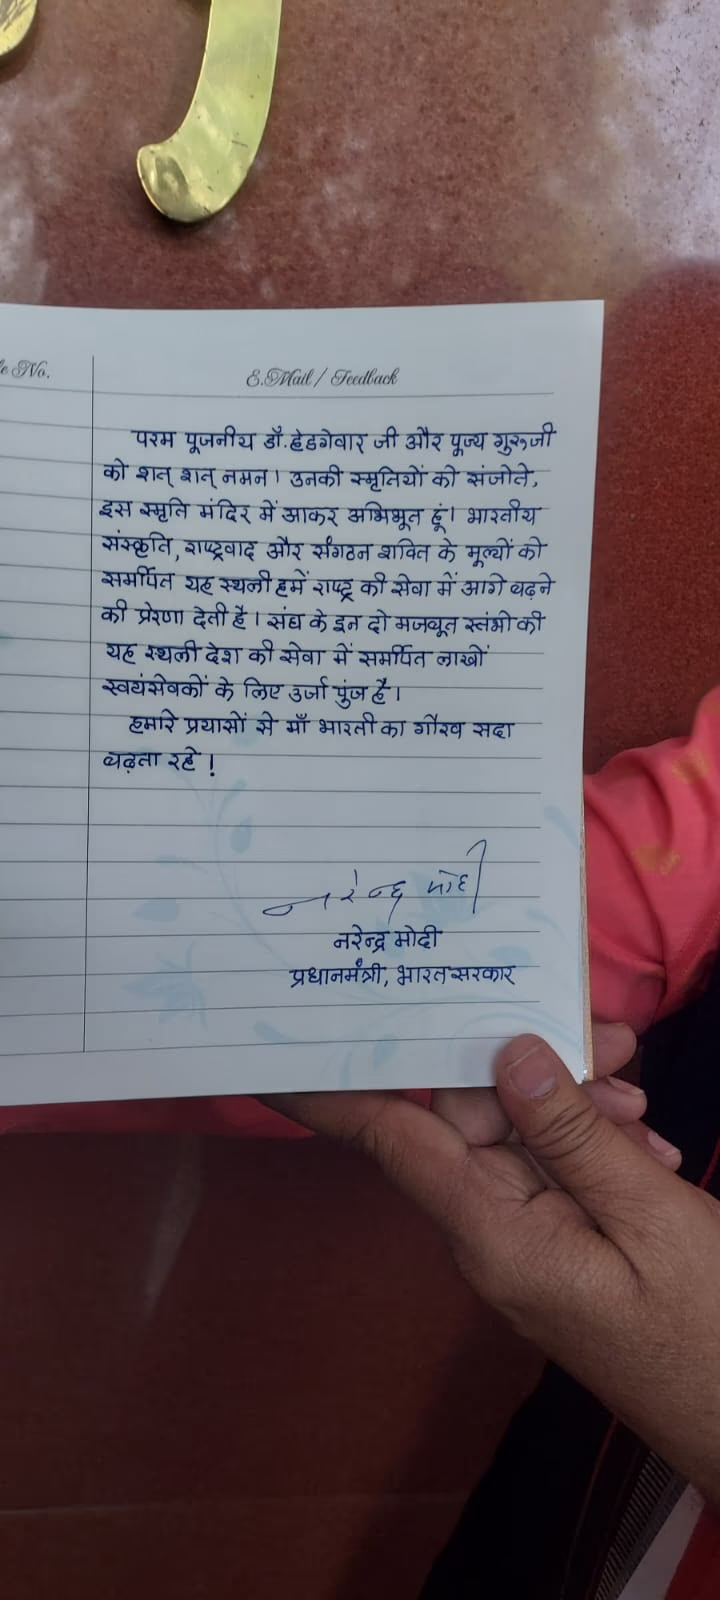 le No.
E.Mail / Feedback
परम पूजनीय डॉ. हेडगेवार जी और पूज्य गुरुजी
को शत् शत् नमन। उनकी स्मृतियों को संजोते,
इस स्मृति मंदिर में आकर अभिभूत हूं। भारतीय
संस्कृति, राष्ट्रवाद और संगठन शक्ति के मूल्यों को
समर्पित यह स्थली हमें राष्ट्र की सेवा में आगे बढ़ने
की प्रेरणा देती है। संघ के इन दो मजबूत स्तंभो की
यह स्थली देश की सेवा में समर्पित लाखों
स्वयंसेवकों के लिए उर्जा पुंज है।
हमारे प्रयासों से माँ भारती का गौरव सदा
बढ़ता रहे!
नरेन्द्र मोदी
नरेन्द्र मोदी
प्रधानमंत्री, भारत सरकार